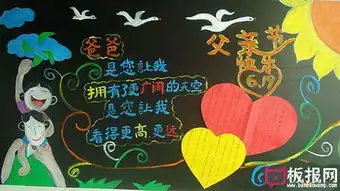 父亲节
快乐
6.19
爸爸
是您让我
拥有了更广阔的天空
是您让我
看得更高更远
板报网
www.banbaowang.com